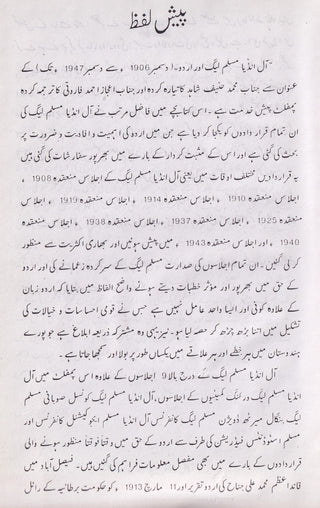 پیش لفظ
"آل انڈیا مسلم لیگ اور اردو۔ (دسمبر 1906ء سے دسمبر 1947ء تک) کے
عنوان سے جناب محمد حنیف شاہد کا تیار کردہ اور جناب اعجاز احمد فاروقی کا ترجمہ کردہ
پمفلٹ پیش خدمت ہے۔ اس کتابچے میں فاضل مرتب نے آل انڈیا مسلم لیگ کی
ان تمام قرار دادوں کو یکجا کر دیا ہے جن میں اردو کی اہمیت و افادیت و ضرورت پر
بحث کی گئی ہے اور اس کے مثبت کردار کے بارے میں بھرپور سفارشات کی گئی ہیں
یہ قرار دادیں مختلف اوقات میں یعنی آل انڈیا مسلم لیگ کے اجلاس منعقدہ 1908
ء، اجلاس منعقدہ 1910ء، اجلاس منعقدہ 1914ء، اجلاس منعقدہ 1919ء، اجلاس منعقدہ
1925ء، اجلاس منعقدہ 1937ء، اجلاس منعقدہ 1938ء، اجلاس منعقدہ
1940ء اور اجلاس منعقدہ 1943ء میں پیش ہوئیں اور بھاری اکثریت سے منظور
کر لی گئیں۔ ان تمام اجلاسوں کی صدارت مسلم لیگ کے سرکردہ زعما نے کی اور اردو
کے حق میں بھرپور اور مؤثر خطبات دیتے ہوئے واضح الفاظ میں بتایا کہ اردو زبان
کے علاوہ کوئی اور ایسا واحد عامل نہیں ہے جس نے قومی احساسات و خیالات کی
تشکیل میں اتنا بڑھ چڑھ کر حصہ لیا ہو۔ نیز یہی وہ مشترکہ ذریعہ ابلاغ ہے جو پورے
ہندوستان میں ہر خطے اور ہر علاقے میں یکساں طور پر بولا اور سمجھا جاتا ہے۔
آل انڈیا مسلم لیگ کے درج بالا 9 اجلاسوں کے علاوہ اس پمفلٹ میں آل
انڈیا مسلم لیگ ورکنگ کمیٹیوں کے اجلاسوں، آل انڈیا مسلم لیگ کونسل صوبائی مسلم
لیگ بنگال میرٹھ ڈویژن مسلم لیگ کانفرنس آل انڈیا مسلم ایجوکیشنل کانفرنس اور
مسلم اسٹوڈنٹس فیڈریشن کی طرف سے اردو کے حق میں وقتاً فوقتاً منظور ہونے والی
قرار دادوں کے بارے میں بھی مفصل معلومات فراہم کی گئیں ہیں۔ فیصل آباد میں
قائد اعظم محمد علی جناح کی اردو تقریر اور 11 مارچ 1913ء کو حکومت برطانیہ کے رائل